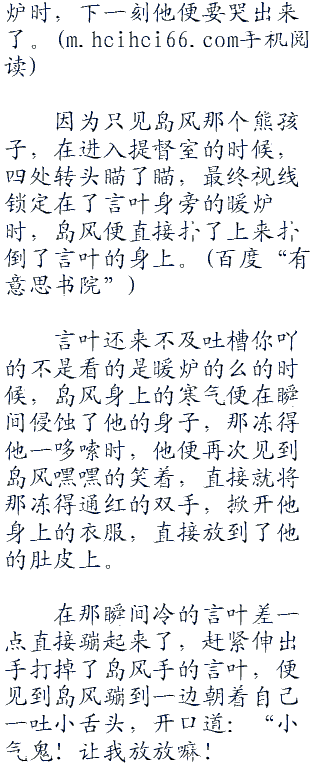 炉时，下一刻他便要哭出来
了。(m.hcihci66.com手机阅
读)
因为只见岛风那个熊孩
子，在进入提督室的时候，
四处转头瞄了瞄，最终视线
锁定在了言叶身旁的暖炉
时，岛风便直接扑了上来扑
倒了言叶的身上。(百度“有
意思书院”)
言叶还来不及吐槽你吖
的不是看的是暖炉的么的时
候，岛风身上的寒气便在瞬
间侵蚀了他的身子，那冻得
他一哆嗦时，他便再次见到
岛风嘿嘿的笑着，直接就将
那冻得通红的双手，掀开他
身上的衣服，直接放到了他
的肚皮上。
在那瞬间冷的言叶差一
点直接蹦起来了，赶紧伸出
手打掉了岛风手的言叶，便
见到岛风蹦到一边朝着自己
一吐小舌头，开口道：“小
气鬼！让我放放嘛！